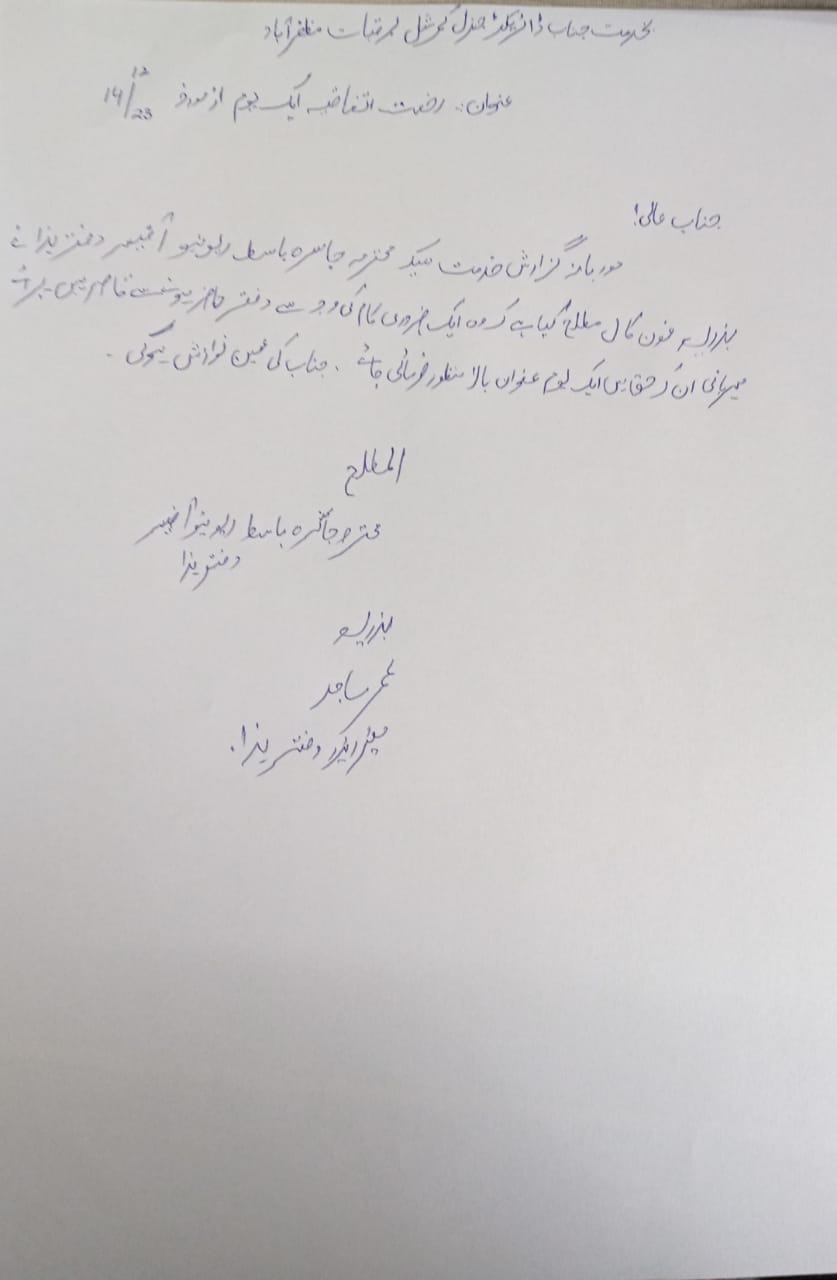 بخدمت جناب ڈائریکٹر جنرل کمرشل لمرقبات مظفرآباد
عنوان:۔ رخصت اتفاقیہ ایک یوم از مورخہ 14/12/23
جناب عالی!
مودبانہ گزارش خدمت ہیکہ محترمہ باسط ریونیو آفیسر دفتر ہذا نے
بذریعہ فون کال مطلع کیا ہے کہ وہ ایک ضروری کام کی وجہ سے دفتر حاضر ہونے سے قاصر ہیں برائے
مہربانی ان کے حق میں ایک یوم عنوان بالا منظور فرمائی جائے ۔ جناب کی عین نوازش ہوگی ۔
المطلع
محترمہ باسط ریونیو آفیسر
دفتر ہذا
بذریعہ
ساجد
دفتر ہذا۔